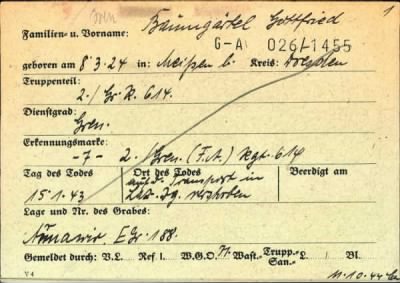 Familien- u. Vorname: Baumgärtel Gottfried
G-A 026/1455
1
geboren am 8.3.24 in: Meißen b. Kreis: Dresden
Truppenteil:
2./Gr.R. 614.
Dienstgrad:
Gren.
Erkennungsmarke:
-7- 2./Gren.(F.A.) Rgt. 614
Tag des Todes Ort des Todes Beerdigt am
15.1.43 auf d. Transport in
verstorben
Lage und Nr. des Grabes:
E Gr. 188.
Gemeldet durch: V.L. Ref I. W.G.O. Wast.- Trupp.- San.- L. Bl.
V 4
11.10.44